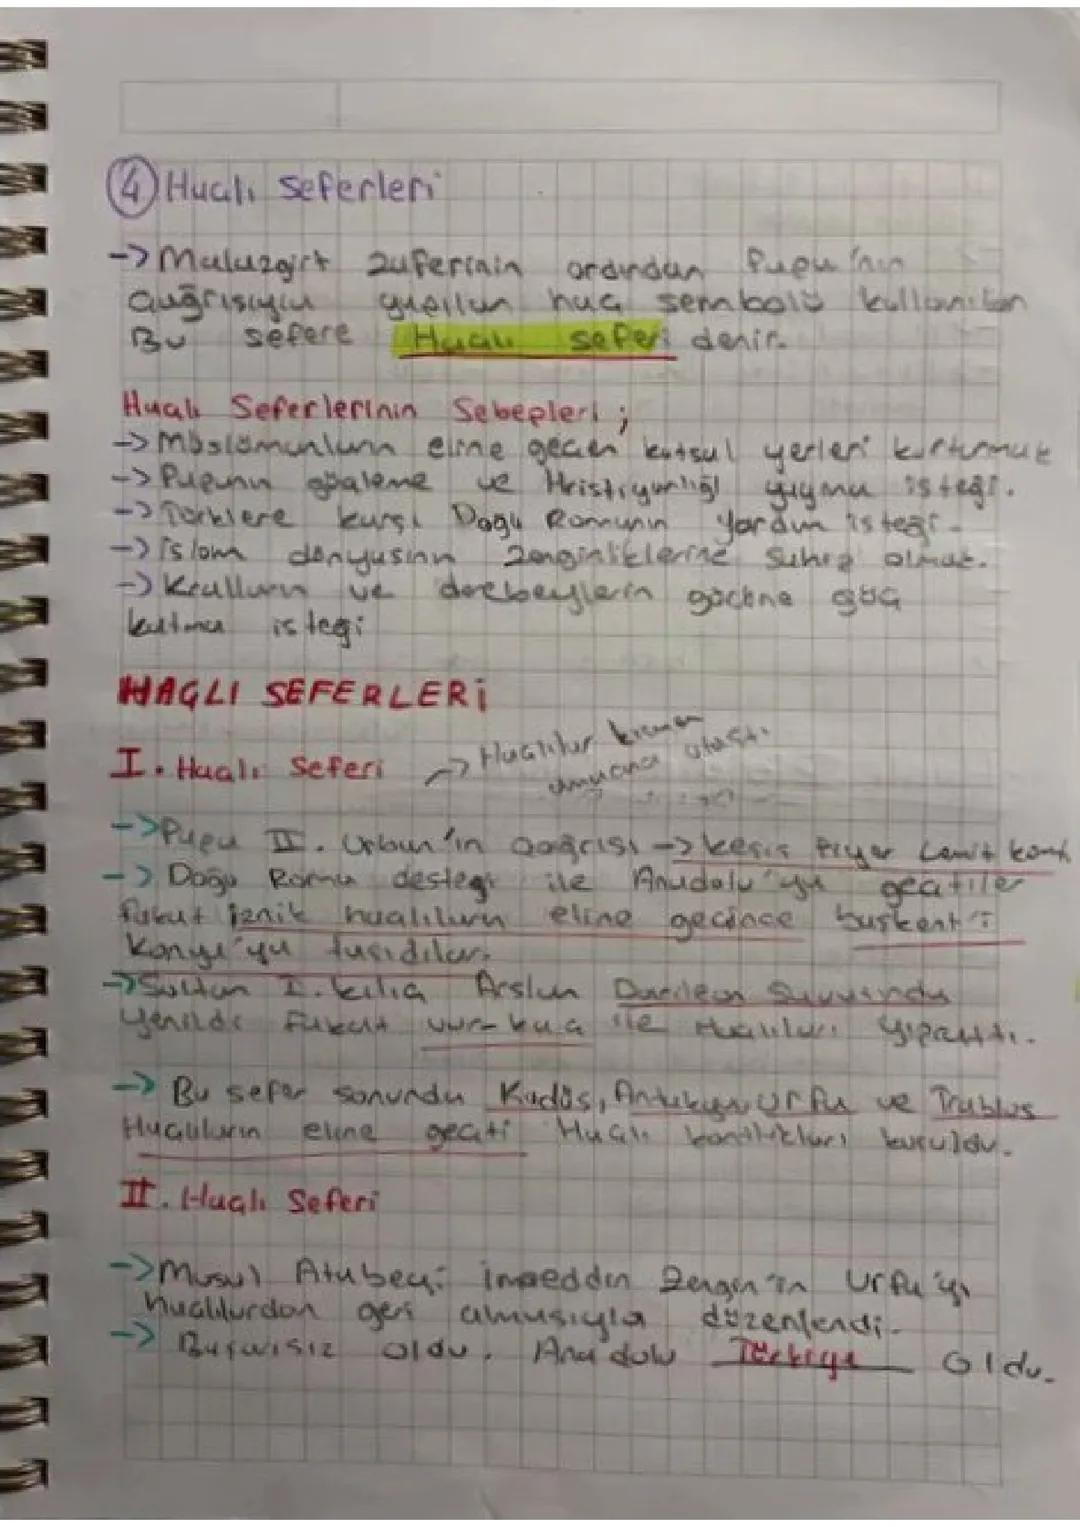 ④ Haçlı Seferleri
-> Malazgirt zaferinin ardından Papa'nın
çağrısıyla yapılan haç sembolü kullanılan
Bu sefere Haçlı seferi denir.
Haçlı Seferlerinin Sebepleri;
-> Müslümanların eline geçen kutsal yerleri kurtarmak
-> Papanın gözaleme ve Hristiyanlığı yayma isteği.
-> Türklere karşı Doğu Romanın yardım isteği.
-> İslam dünyasının zenginliklerine sahip olmak.
-> Kralların ve derebeylerin gücüne güç
katma isteği
HAÇLI SEFERLERİ
I. Haçlı Seferi -> Haçlılar kısmen
amacına ulaştı.
-> Papa II. Urban'ın çağrısı -> keşiş Piyer
-> Doğu Roma desteği ile Anadolu'ya geçtiler
fakat iznik haçlıların eline geçince başkent'i
Konya'ya taşıdılar.
-> Sultan I. kılıç Arslan Dorileon Savaşında
yenildi Fakat vur-kaç ile Haçlıları yıprattı.
-> Bu sefer sonunda Kudüs, Antakya, Urfa ve Trablus
Haçlıların eline geçti Haçlı kontlukları kuruldu.
II. Haçlı Seferi
-> Musul Atabeyi imaeddin Zengin'in Urfa'yı
haçlılardan geri almasıyla düzenlendi.
-> Başarısız oldu. Anadolu Türkiye oldu.